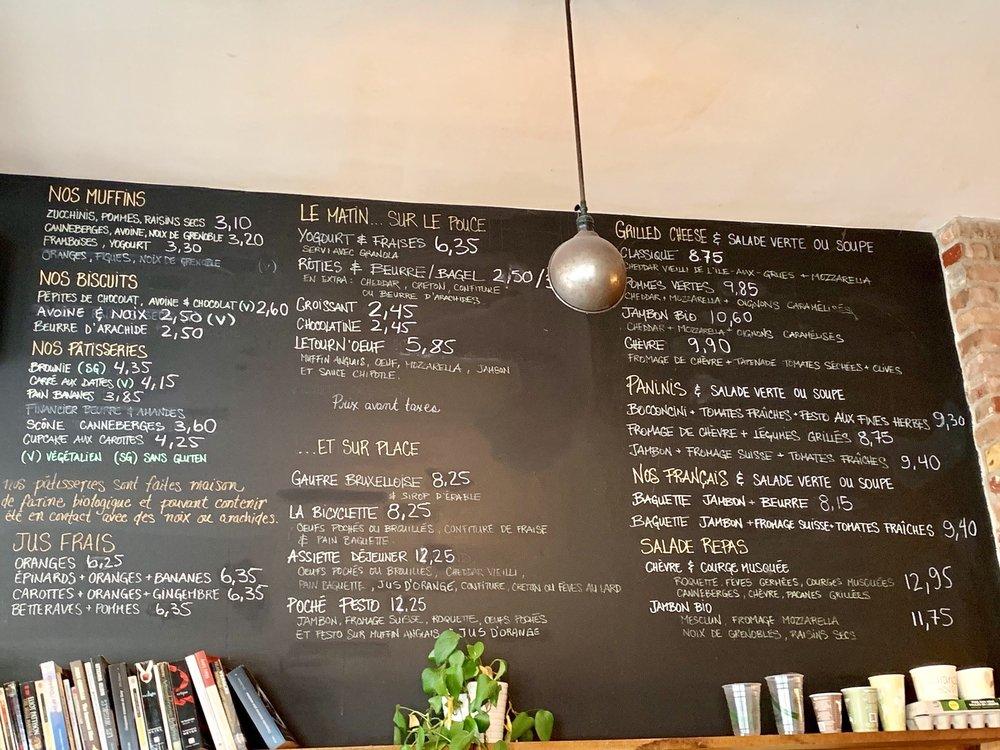 NOS MUFFINS
ZUCCHINIS, POMMES, RAISINS SECS 3,10
CANNEBERGES, AVOINE, NOIX DE GRENOBLE 3,20
FRAMBOISES, YOGOURT 3,30
ORANGES, FIGUES, NOIX DE GRENOBLE (V)
NOS BISCUITS
PEPITES DE CHOCOLAT, AVOINE & CHOCOLAT (V) 2,60
AVOINE & NOIX 2,50 (V)
BEURRE D'ARACHIDE 2,50
NOS PÂTISSERIES
BROWNIE (SG) 4,35
CARRÉ AUX DATTES (V) 4,15
PAIN BANANES 3,85
FINANCIER BEURRE & AMANDES
SCÔNE CANNEBERGES 3,60
CUPCAKE AUX CAROTTES 4,25
(V) VÉGÉTALIEN (SG) SANS GLUTEN
nos pâtisseries sont faites maison
de farine biologique et peuvent contenir
été en contact avec des noix ou arachides.
JUS FRAIS
ORANGES 6,25
ÉPINARDS + ORANGES + BANANES 6,35
CAROTTES + ORANGES + GINGEMBRE 6,35
BETTERAVES + POMMES 6,35
LE MATIN... SUR LE POUCE
YOGOURT & FRAISES 6,35
SERVI AVEC GRANOLA
RÔTIES & BEURRE/BAGEL 2,50/3
EN EXTRA: CHEDDAR, CRETON, CONFITURE
OU BEURRE D'ARACHIDES
CROISSANT 2,45
CHOCOLATINE 2,45
LETOURN'OEUF 5,85
MUFFIN ANGLAIS, OEUF, MOZZARELLA, JAMBON
ET SAUCE CHIPOTLE.
Prix avant taxes
...ET SUR PLACE
GAUFRE BRUXELLOISE 8,25
& SIROP D'ÉRABLE
LA BICYCLETTE 8,25
OEUFS POCHÉS OU BROUILLÉS, CONFITURE DE FRAISE
& PAIN BAGUETTE
ASSIETTE DÉJEUNER 12,25
OEUFS POCHÉS OU BROUILLÉS, CHEDDAR VIEILLI,
PAIN BAGUETTE, JUS D'ORANGE, CONFITURE, CRETON OU FÈVES AU LARD
POCHÉ PESTO 12,25
JAMBON, FROMAGE SUISSE, ROQUETTE, OEUFS POCHÉS
ET PESTO SUR MUFFIN ANGLAIS & JUS D'ORANGE
GRILLED CHEESE & SALADE VERTE OU SOUPE
CLASSIQUE 8.75
CHEDDAR VIEILLI DE L'ILE-AUX-GRUES + MOZZARELLA
POMMES VERTES 9,85
CHEDDAR, MOZZARELLA + OIGNONS CARAMÉLISÉS
JAMBON BIO 10,60
CHEDDAR + MOZZARELLA + OIGNONS CARAMÉLISÉS
CHÈVRE 9,90
FROMAGE DE CHÈVRE + TAPENADE TOMATES SÉCHÉES + OLIVES
PANINIS & SALADE VERTE OU SOUPE
BOCCONCINI + TOMATES FRAÎCHES + PESTO AUX FINES HERBES 9,30
FROMAGE DE CHÈVRE + LÉGUMES GRILLÉS 8,75
JAMBON + FROMAGE SUISSE + TOMATES FRAÎCHES 9,40
NOS FRANÇAIS & SALADE VERTE OU SOUPE
BAGUETTE JAMBON + BEURRE 8,15
BAGUETTE JAMBON + FROMAGE SUISSE + TOMATES FRAÎCHES 9,40
SALADE REPAS
CHÈVRE & COURGE MUSQUÉE
ROQUETTE, FÈVES GERMÉES, COURGES MUSQUÉES 12,95
CANNEBERGES, CHÈVRE, PACANES GRILLÉES
JAMBON BIO 11,75
MESCLUN FROMAGE MOZZARELLA
NOIX DE GRENOBLES, RAISINS SECS